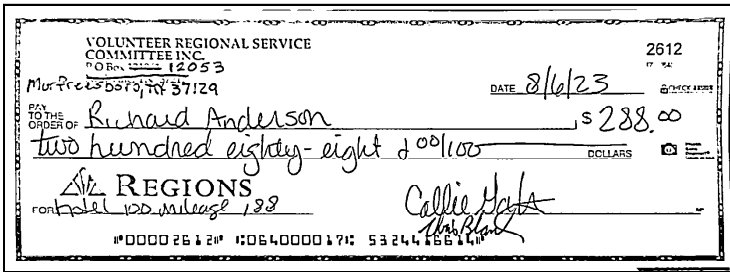 VOLUNTEER REGIONAL SERVICE
COMMITTEE INC.
P O Box 12053
Murfreesboro, TN 37129
2612
DATE 8/6/23
PAY TO THE ORDER OF Richard Anderson $ 288.00
two hundred eighty-eight & 00/100 DOLLARS
REGIONS
FOR Hotel 100 mileage 188
Callie
⑈00002612⑈ ⑆064000017⑆ 5324416614⑈